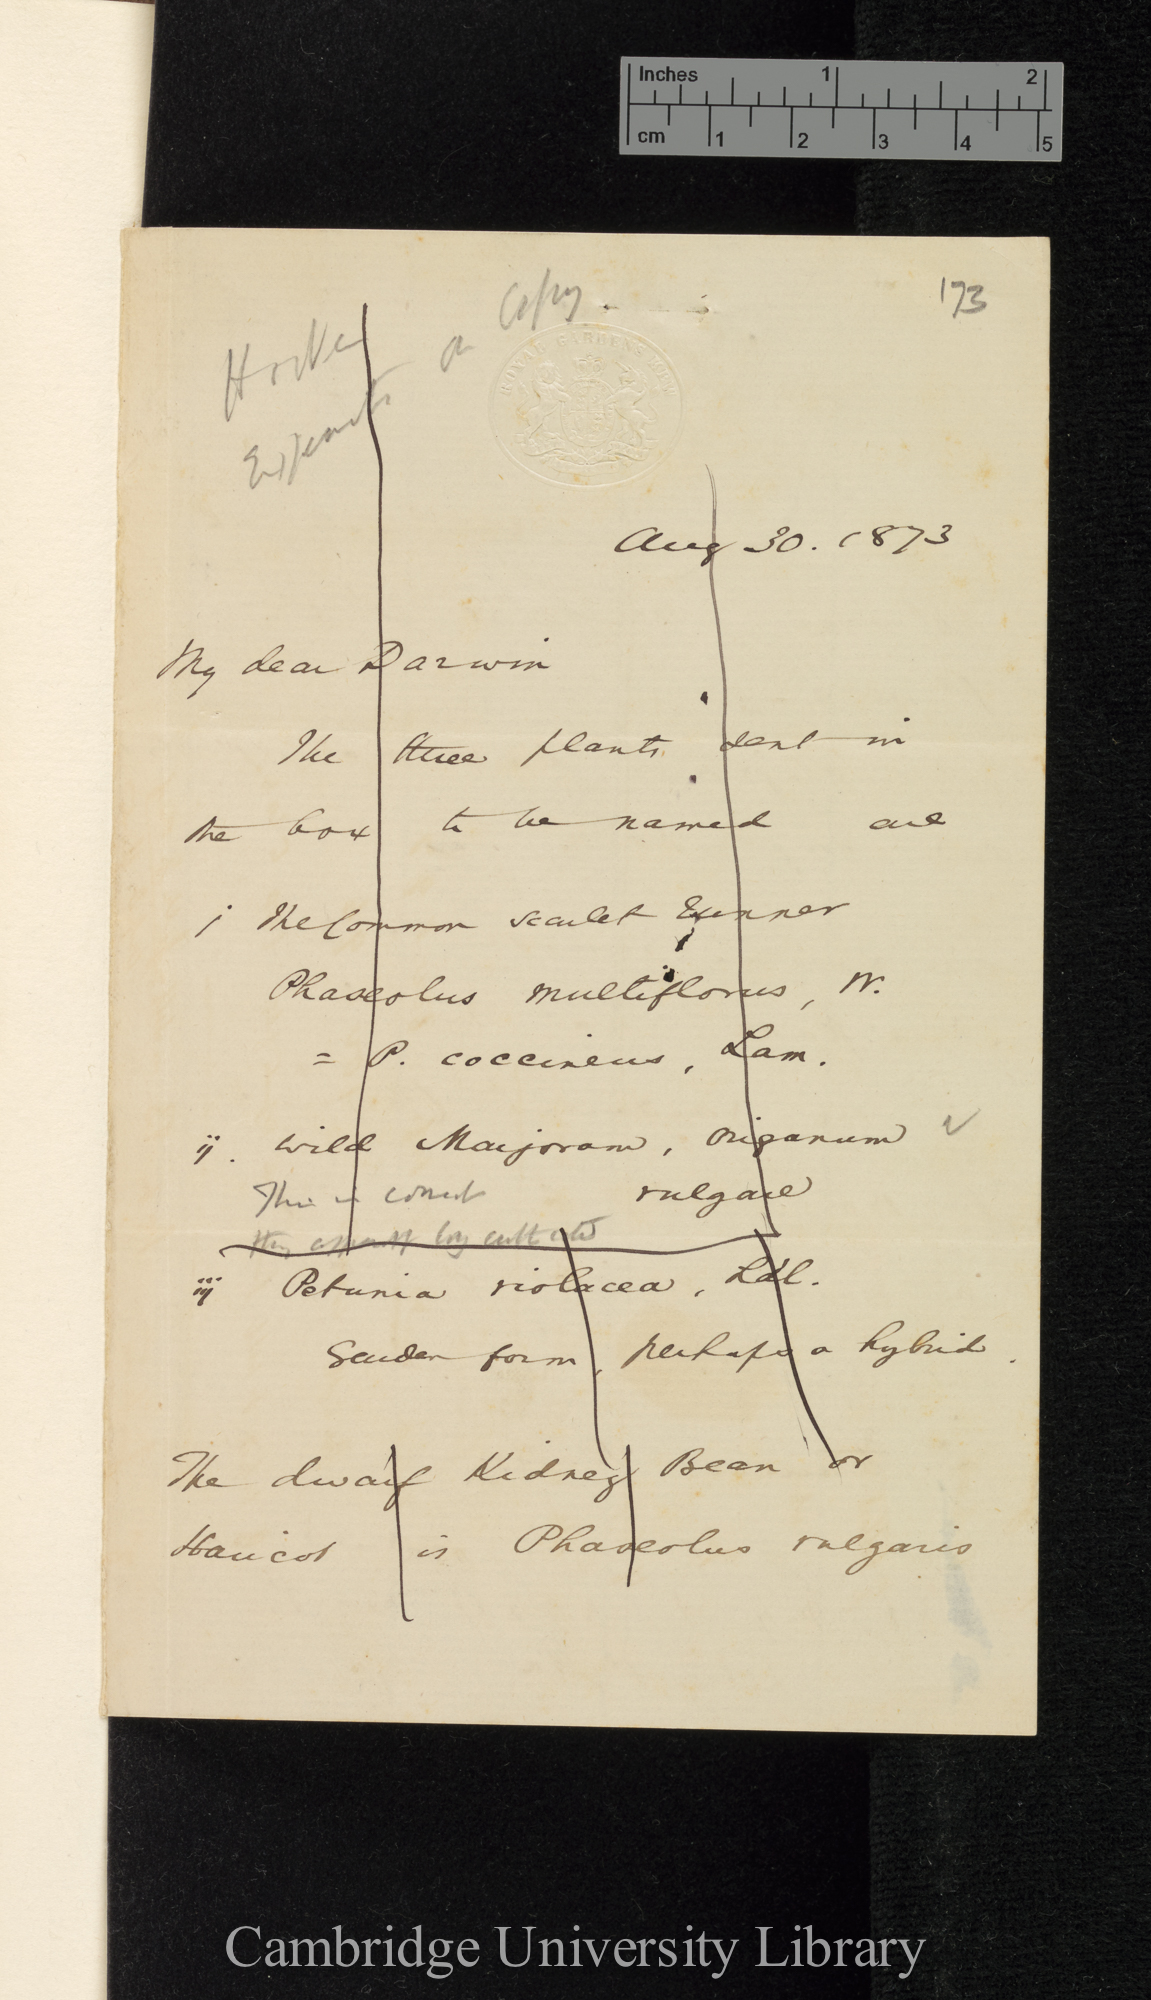 Inches 1 2
cm 1 2 3 4 5
173
Copy
Hooker
on
ROYAL GARDENS KEW
Aug 30. 1873
My dear Darwin
The three plants sent in
the box to be named are
i The Common scarlet Runner
Phaseolus multiflorus, W.
= P. coccineus, Lam.
ij. Wild Marjoram, Origanum
vulgare
This is correct
iij Petunia violacea, Ldl.
Garden form, perhaps a hybrid.
The dwarf Kidney Bean or
Haricot is Phaseolus vulgaris
Cambridge University Library